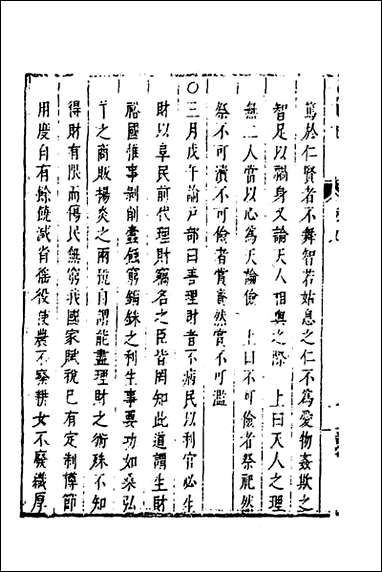 篤於仁賢者不舞智若姑息之仁不爲愛物姦欺之
智足以禍身又論天人相與之際　上曰天人之理
無二人當以心爲天論儉　上曰不可儉者祭祀然
祭不可瀆不可儉者賞賚然賞不可濫
○三月戊午諭戸部曰善理財者不病民以利官必生
財以阜民前代理財竊名之臣皆罔知此道謂生財
裕國惟事剝削蠹蝕窮錙銖之利生事要功如桑弘
羊之商販楊炎之兩稅自謂能盡理財之術殊不知
得財有限而傷民無窮我國家賦稅已有定制撙節
用度自有餘饒減省徭役使農不廢耕女不廢織厚